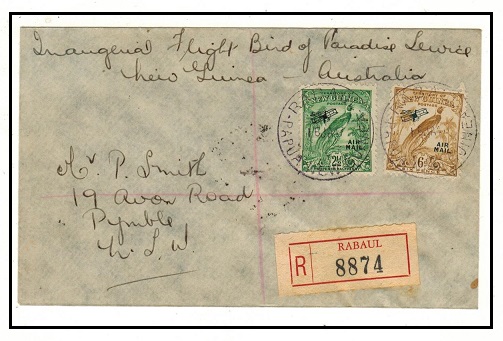 Inaugerial Flight Bird of Paradise Service
New Guinea - Australia
NEW GUINEA
AIR
MAIL
2½
NEW GUINEA
AIR
MAIL
6
Mr P. Smith
19 Avon Road
Pymble
N.S.W.
RABAUL
R 8874